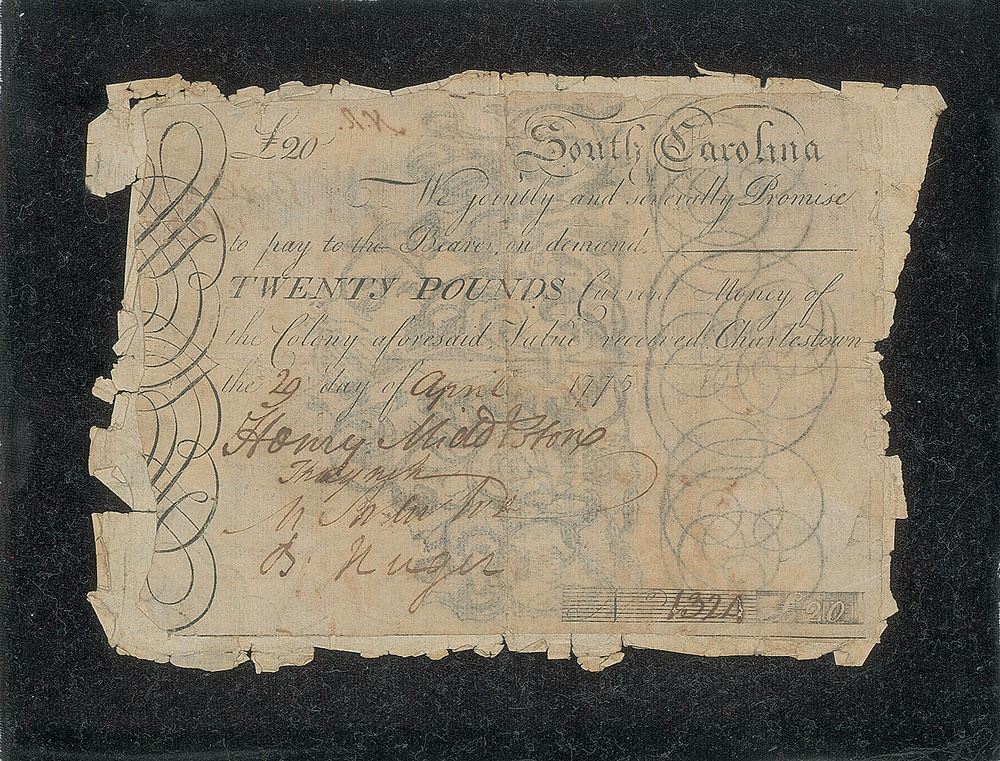 £20 South Carolina
We jointly and severally Promise
to pay to the Bearer, on demand,
TWENTY POUNDS Current Money of
the Colony aforesaid, Value received Charlestown
the 29 day of April 1775
Henry Middleton
B. Huger
£20